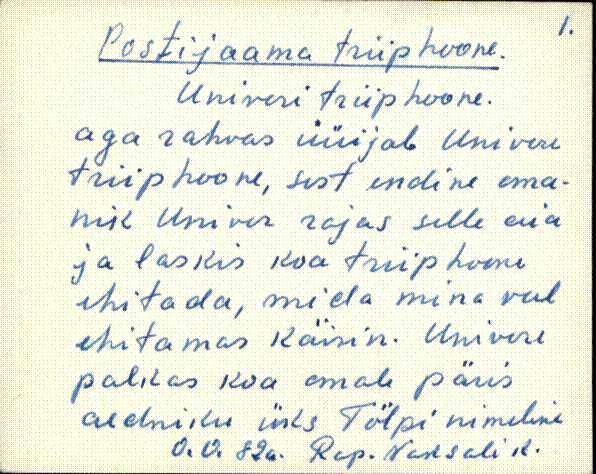 1.
Postijaama triiphoone.
Univeri triiphoone.
aga rahvas üüijab Univere
triiphoone, sest endine oma-
nik Univer rajas selle aia
ja laskis koa triiphoone
ehitada, mida mina veel
ehitamas käisin. Univere
palkas koa omale päris
aedniku üks Tölpi nimeline
O.V. 82a. Rap. Vaksali k.